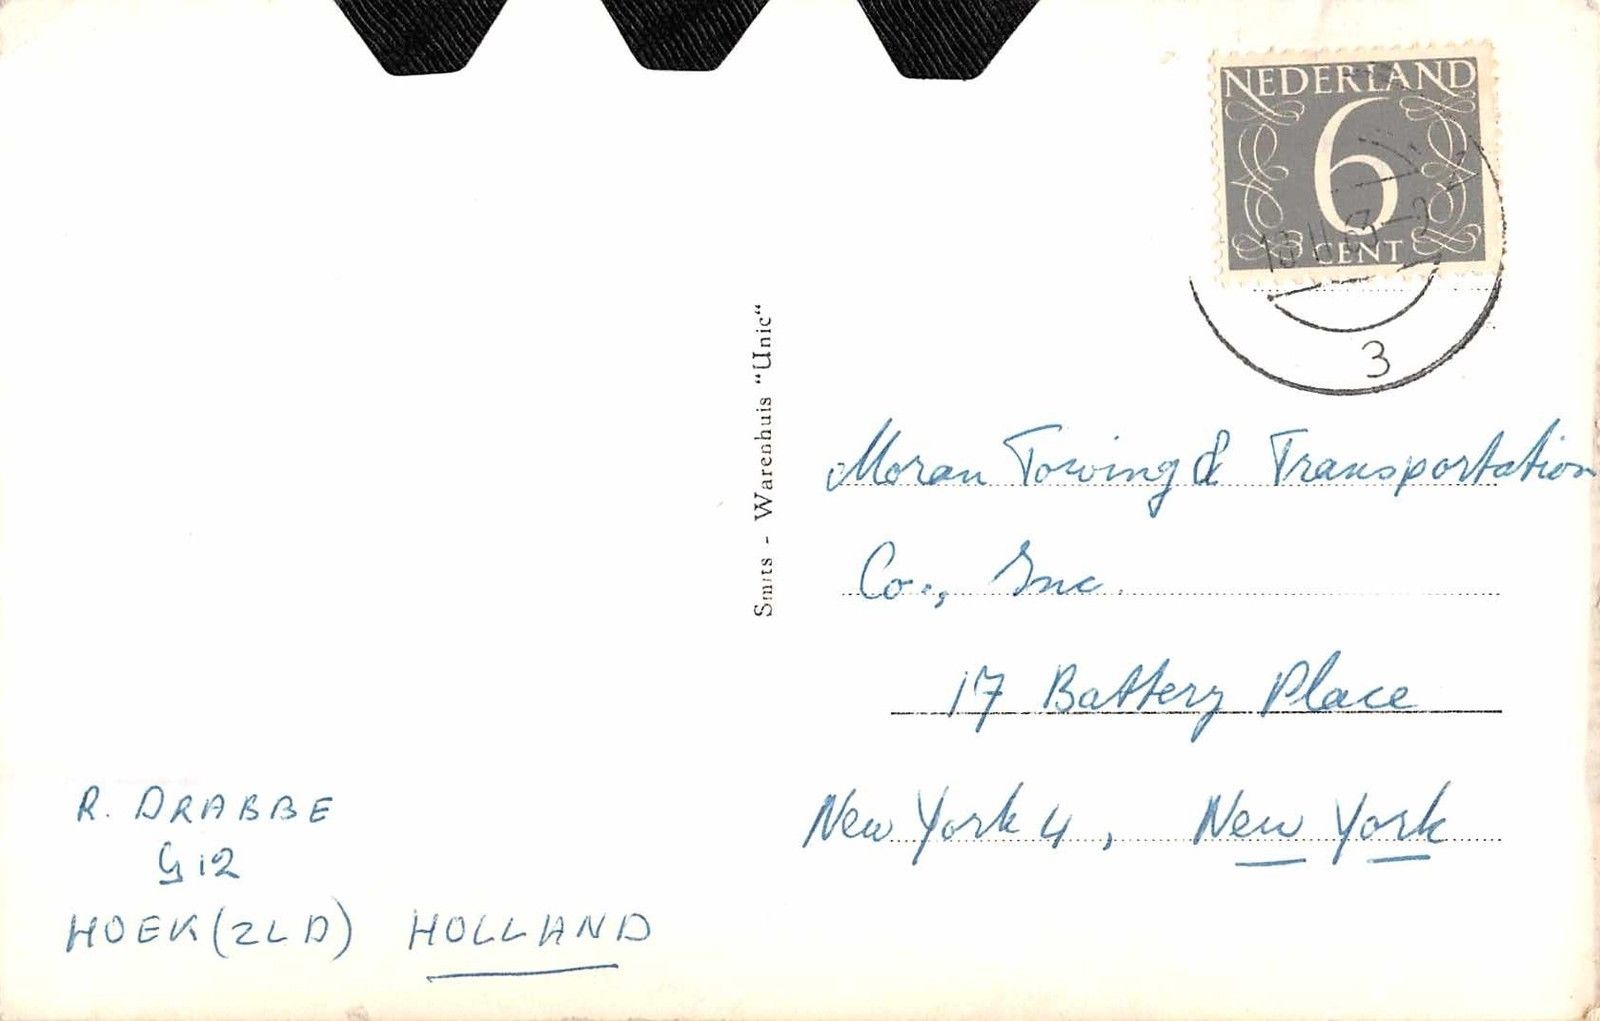 NEDERLAND
6
CENT
3
Smits - Warenhuis "Unic"
Moran Towing & Transportation
Co., Inc.
17 Battery Place
New York 4, New York
R. DRABBE
G 12
HOEK (ZLD) HOLLAND